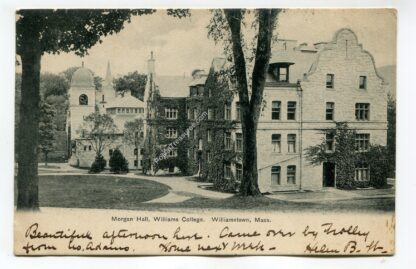 Morgan Hall, Williams College. Williamstown, Mass.
Beautiful afternoon here. Came over by Trolley
from No. Adams. Home next Mch. - Helen B. H.